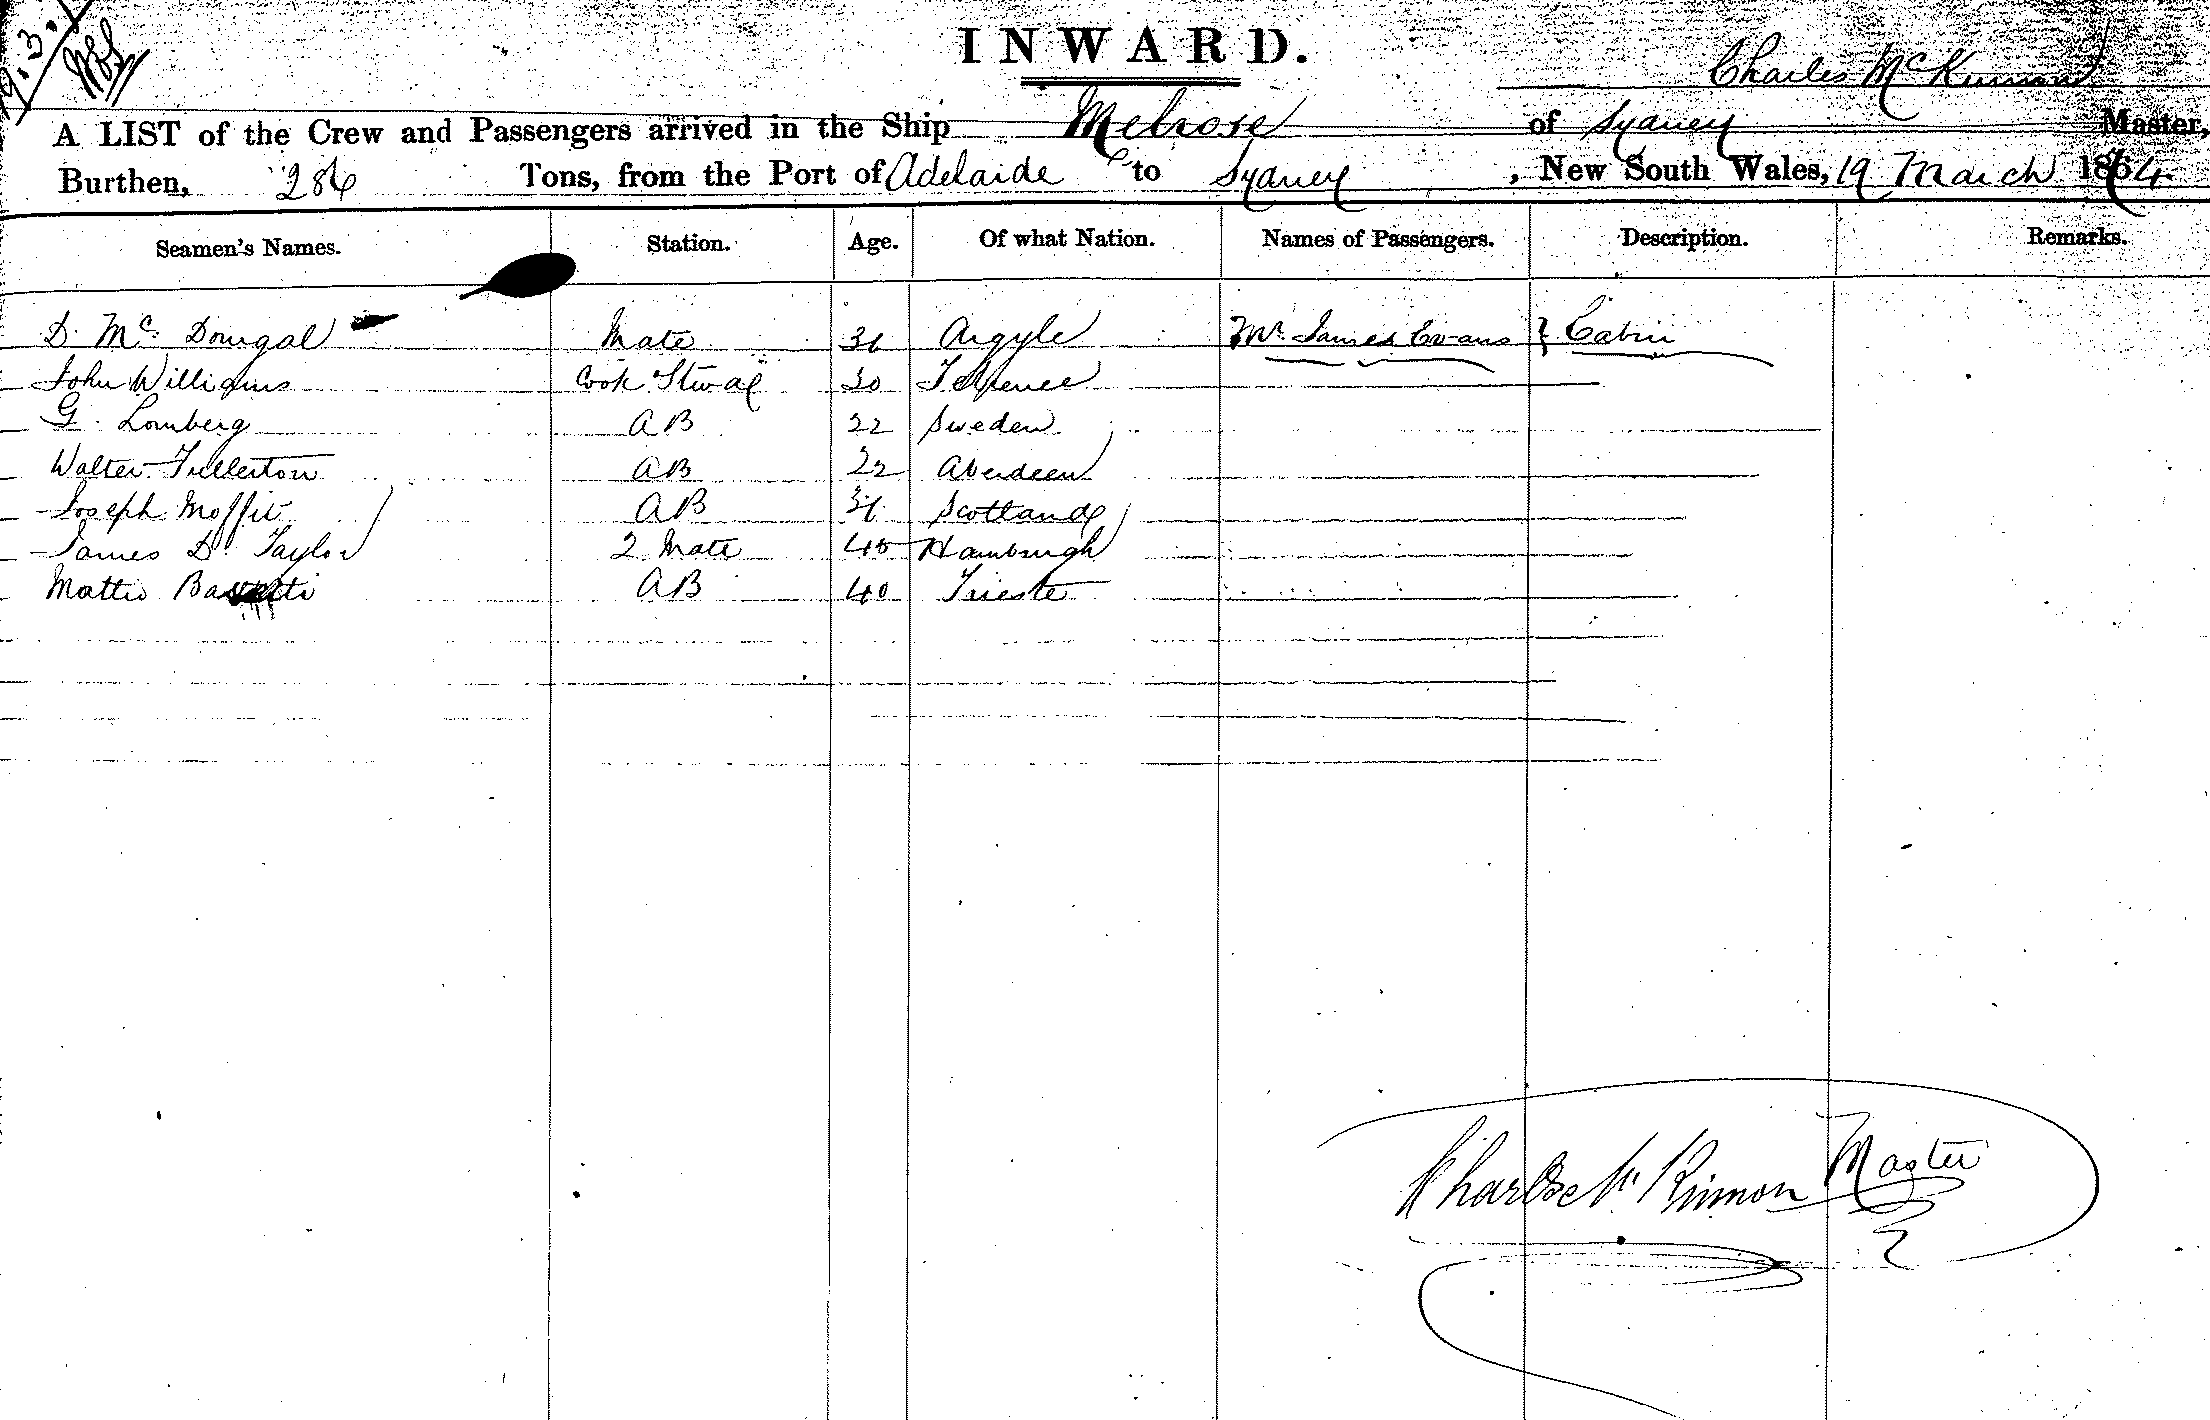 INWARD.
Charles McKinnon
A LIST of the Crew and Passengers arrived in the Ship Melrose of Sydney Master,
Burthen, 286 Tons, from the Port of Adelaide to Sydney, New South Wales, 19 March 1864
Seamen's Names. Station. Age. Of what Nation. Names of Passengers. Description. Remarks.
D. Mc Dougal Mate 31 Argyle Mr. James Evans } Cabin
John Williams Cook Stwad 30
G. Lomberg AB 22 Sweden
Walter Fullerton AB 22 Aberdeen
Joseph Moffit AB 31 Scotland
James D. Taylor 2 Mate 45 Hamburgh
Mattio AB 40 Trieste
Charles Mc Kinnon Master